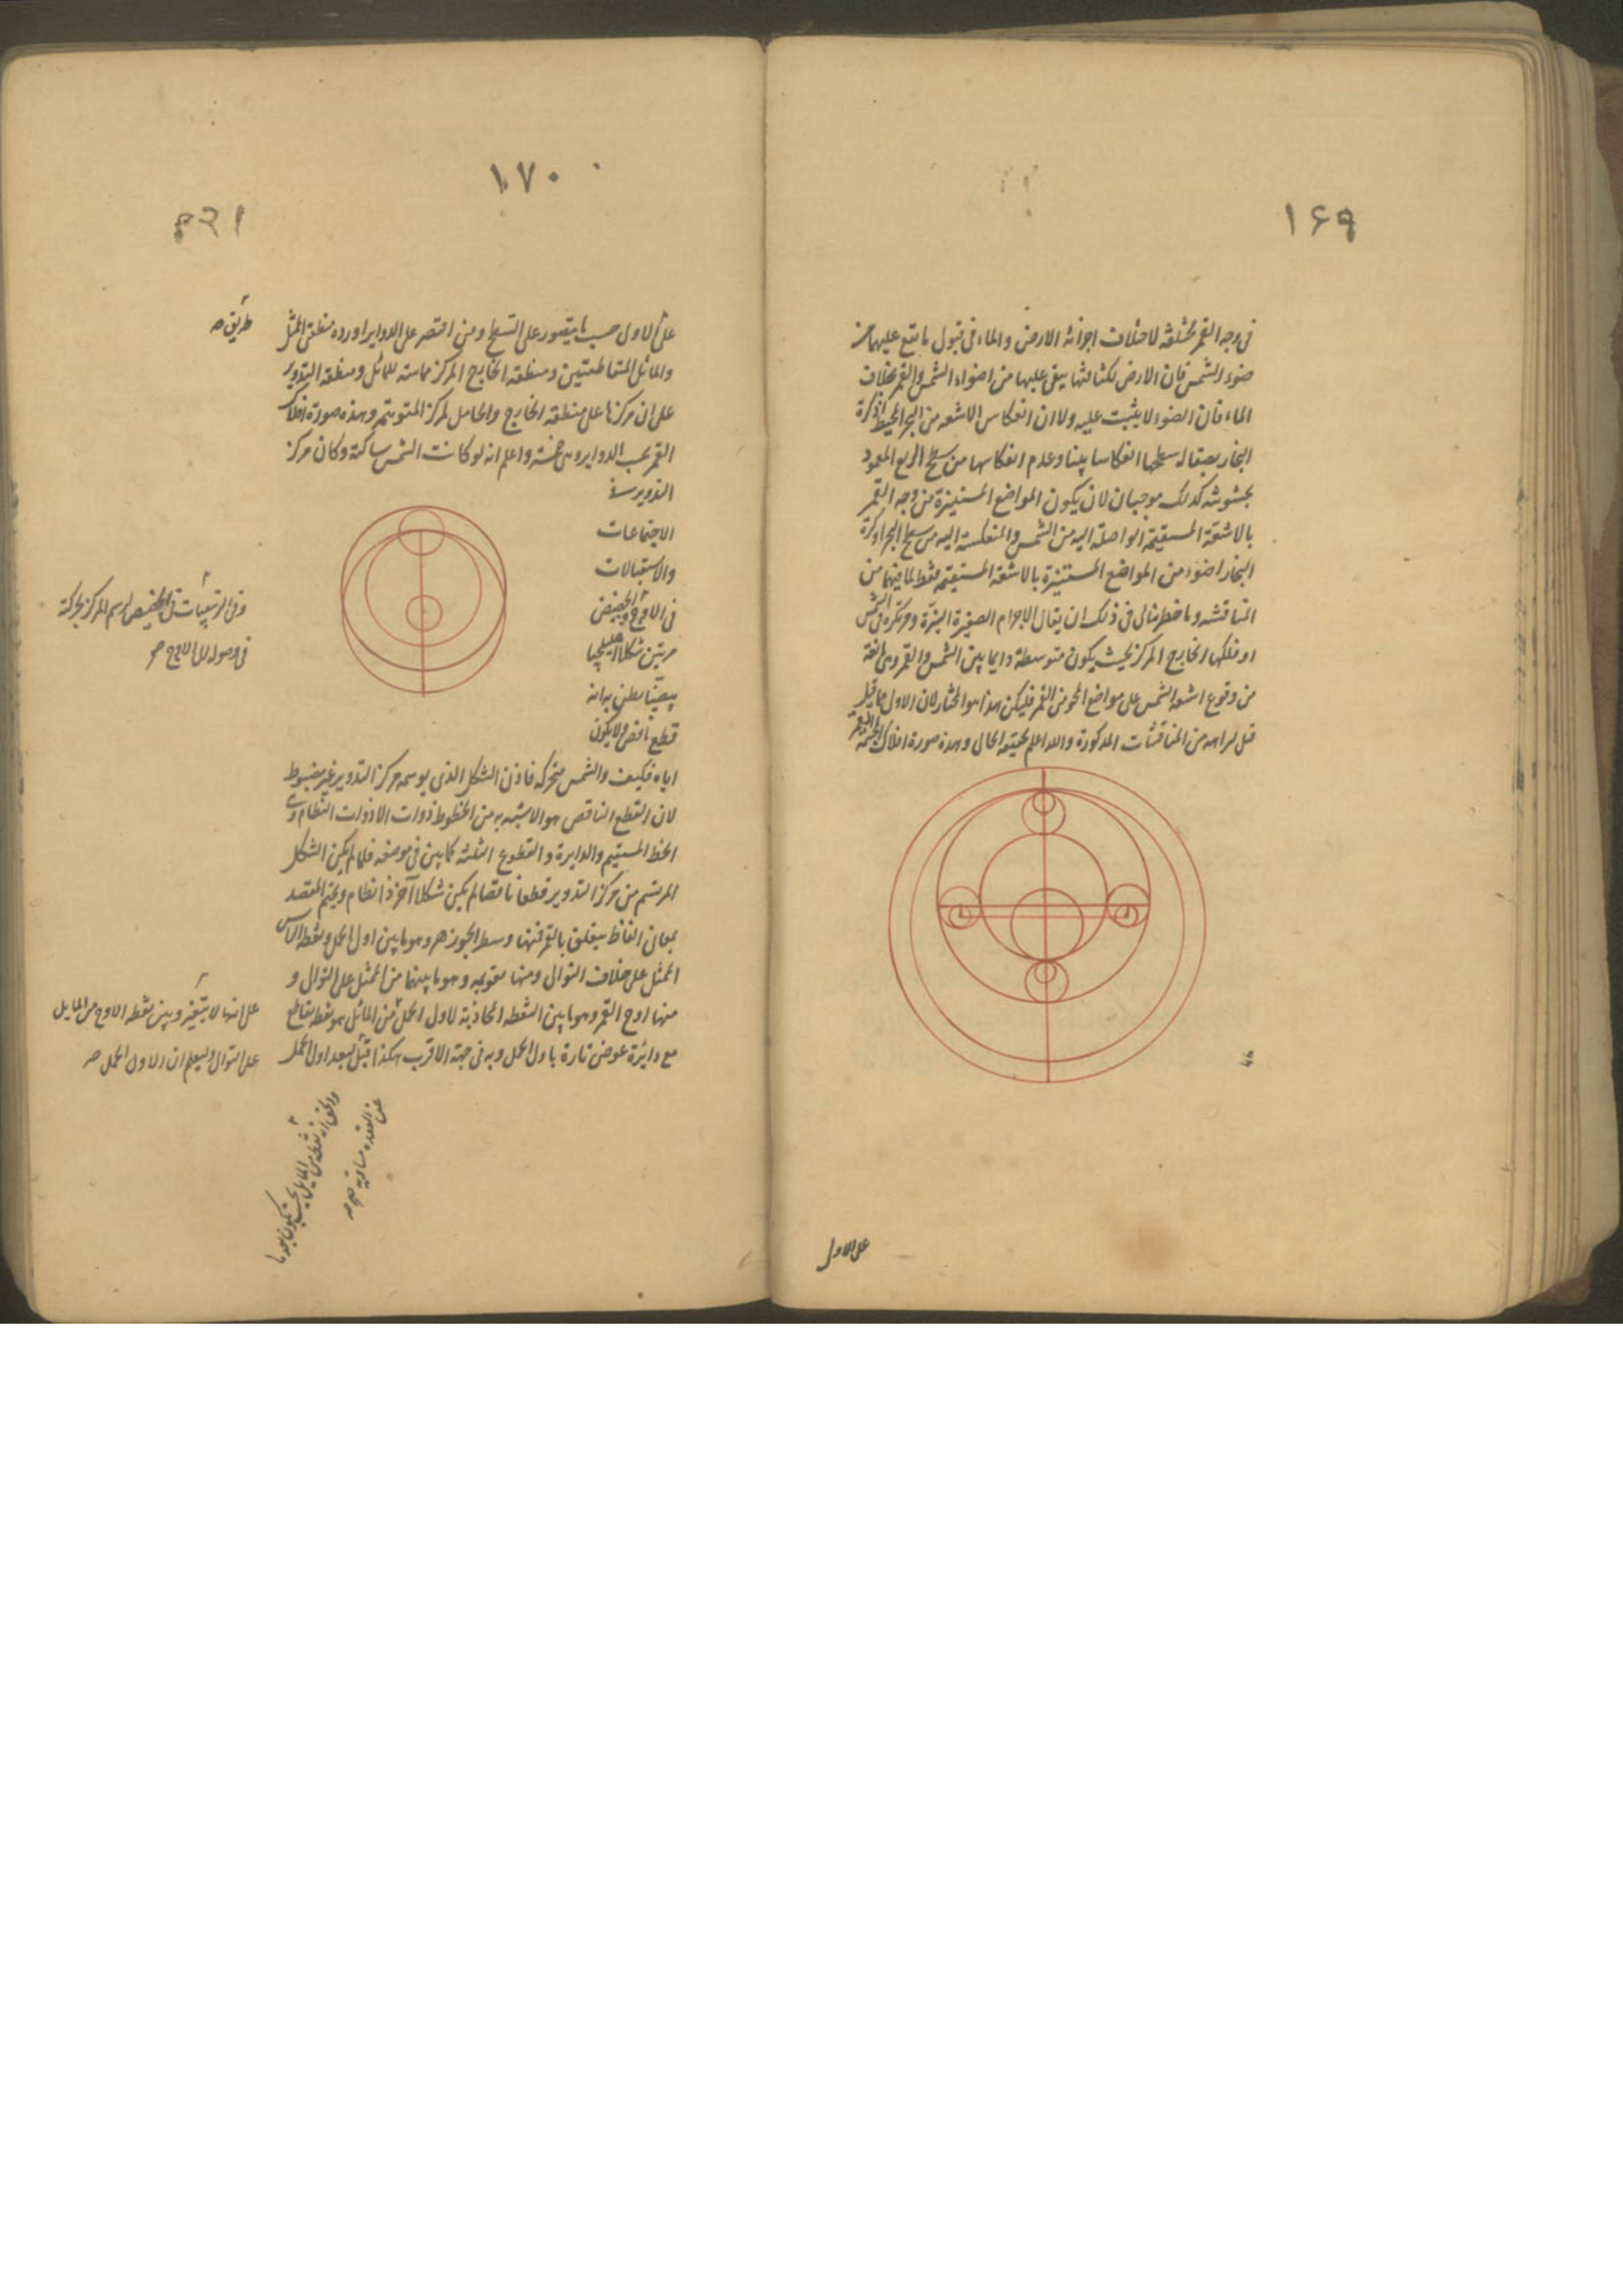 ١٦٩
فى وجه القمر مختلفة لاختلاف اجزائه الارض والماء فى قبول ما يقع عليهما من
ضوء الشمس فان الارض لكثافتها يبقى عليها من اضواء الشمس والقمر بخلاف
الماء فان الضوء لا يثبت عليه ولان انعكاس الاشعه من البحر المحيط او كرة
البخار بصقاله سطحها انعكاسا بينا وعدم انعكاسها من سطح الربع المعمور
بخشونته كذلك موجبان لان يكون المواضع المستنيرة من وجه القمر
بالاشعة المستقيمة الواصلة اليه من الشمس والمنعكسة اليه من سطح البحر او كرة
البخار اضوء من المواضع المستنيرة بالاشعة المستقيمه فقط لما فيهما من
المناقشه وما خطر ببالى فى ذلك ان يقال الاجرام الصغيرة النيرة مركوزة فى الشمس
او فلكها الخارج المركز بحيث يكون متوسطة دايما بين الشمس والقمر وهى مانعة
من وقوع اشعة الشمس على مواضع المحو من القمر فليكن هذا هو المختار لان الاول ما قيل
قبل لبراءته من المناقشات المذكورة والله اعلم بحقيقه الحال وهذه صورة افلاك القمر المجسمة
على الاول
١٧٠
على الاول حسب ما يتصور على التسطيح ومن اقتصر على الدواير اورده منطقتى الممثل
طريق صه
والمائل المتقاطعتين ومنطقه الخارج المركز مماسة للمائل ومنطقه التدوير
على ان مركزها على منطقة الخارج والحامل لمركز المتوهم وهذه صورة افلاك
القمر بحسب الدواير وهى خمسة واعلم انه لو كانت الشمس ساكنة وكان مركز
التدوير فى
الاجتماعات
والاستقبالات
فى الاوج والحضيض
وفى التربيعات فى الحضيض لرسم المركز بحركة
مرتين شكلا اهليلجيا
فى وصوله الى الاوج صح
بيضيا يظن به انه
قطع ناقص ولا يكون
اياه فكيف والشمس متحركه فاذن الشكل الذى يرسمه مركز التدوير غير مضبوط
لان القطع الناقص هو الاشبه به من الخطوط ذوات الاذوات النظام وهى
الخط المستقيم والدايرة والقطوع الثلثه كما بين فى موضعه فلما لم يكن الشكل
المرتسم من مركز التدوير قطعا ناقصا لم يكن شكلا آخر ذا نظام ويختم المقصد
بمعان الفاظ يتعلق بالقمر فمنها وسط الجوزهر وهو ما بين اول الحمل ونقطه الراس
الممثل على خلاف التوالى ومنها تقويمه وهو ما بينهما من الممثل على التوالى و
منها اوج القمر وهو ما بين النقطه المحاذية لاول الحمل من المائل هو نقطة تقاطع
على انها لا يتغير وبين نقطه الاوج من المايل
مع دائرة عرض تارة باول الحمل وبه فى جهة الاقرب هكذا قيل لبعد اول الحمل
على التوالى وليعلم ان الاول الحمل صه
عن العقدة مساوية صه
والحق انه نقطه من المايل بحيث يكون بعدها